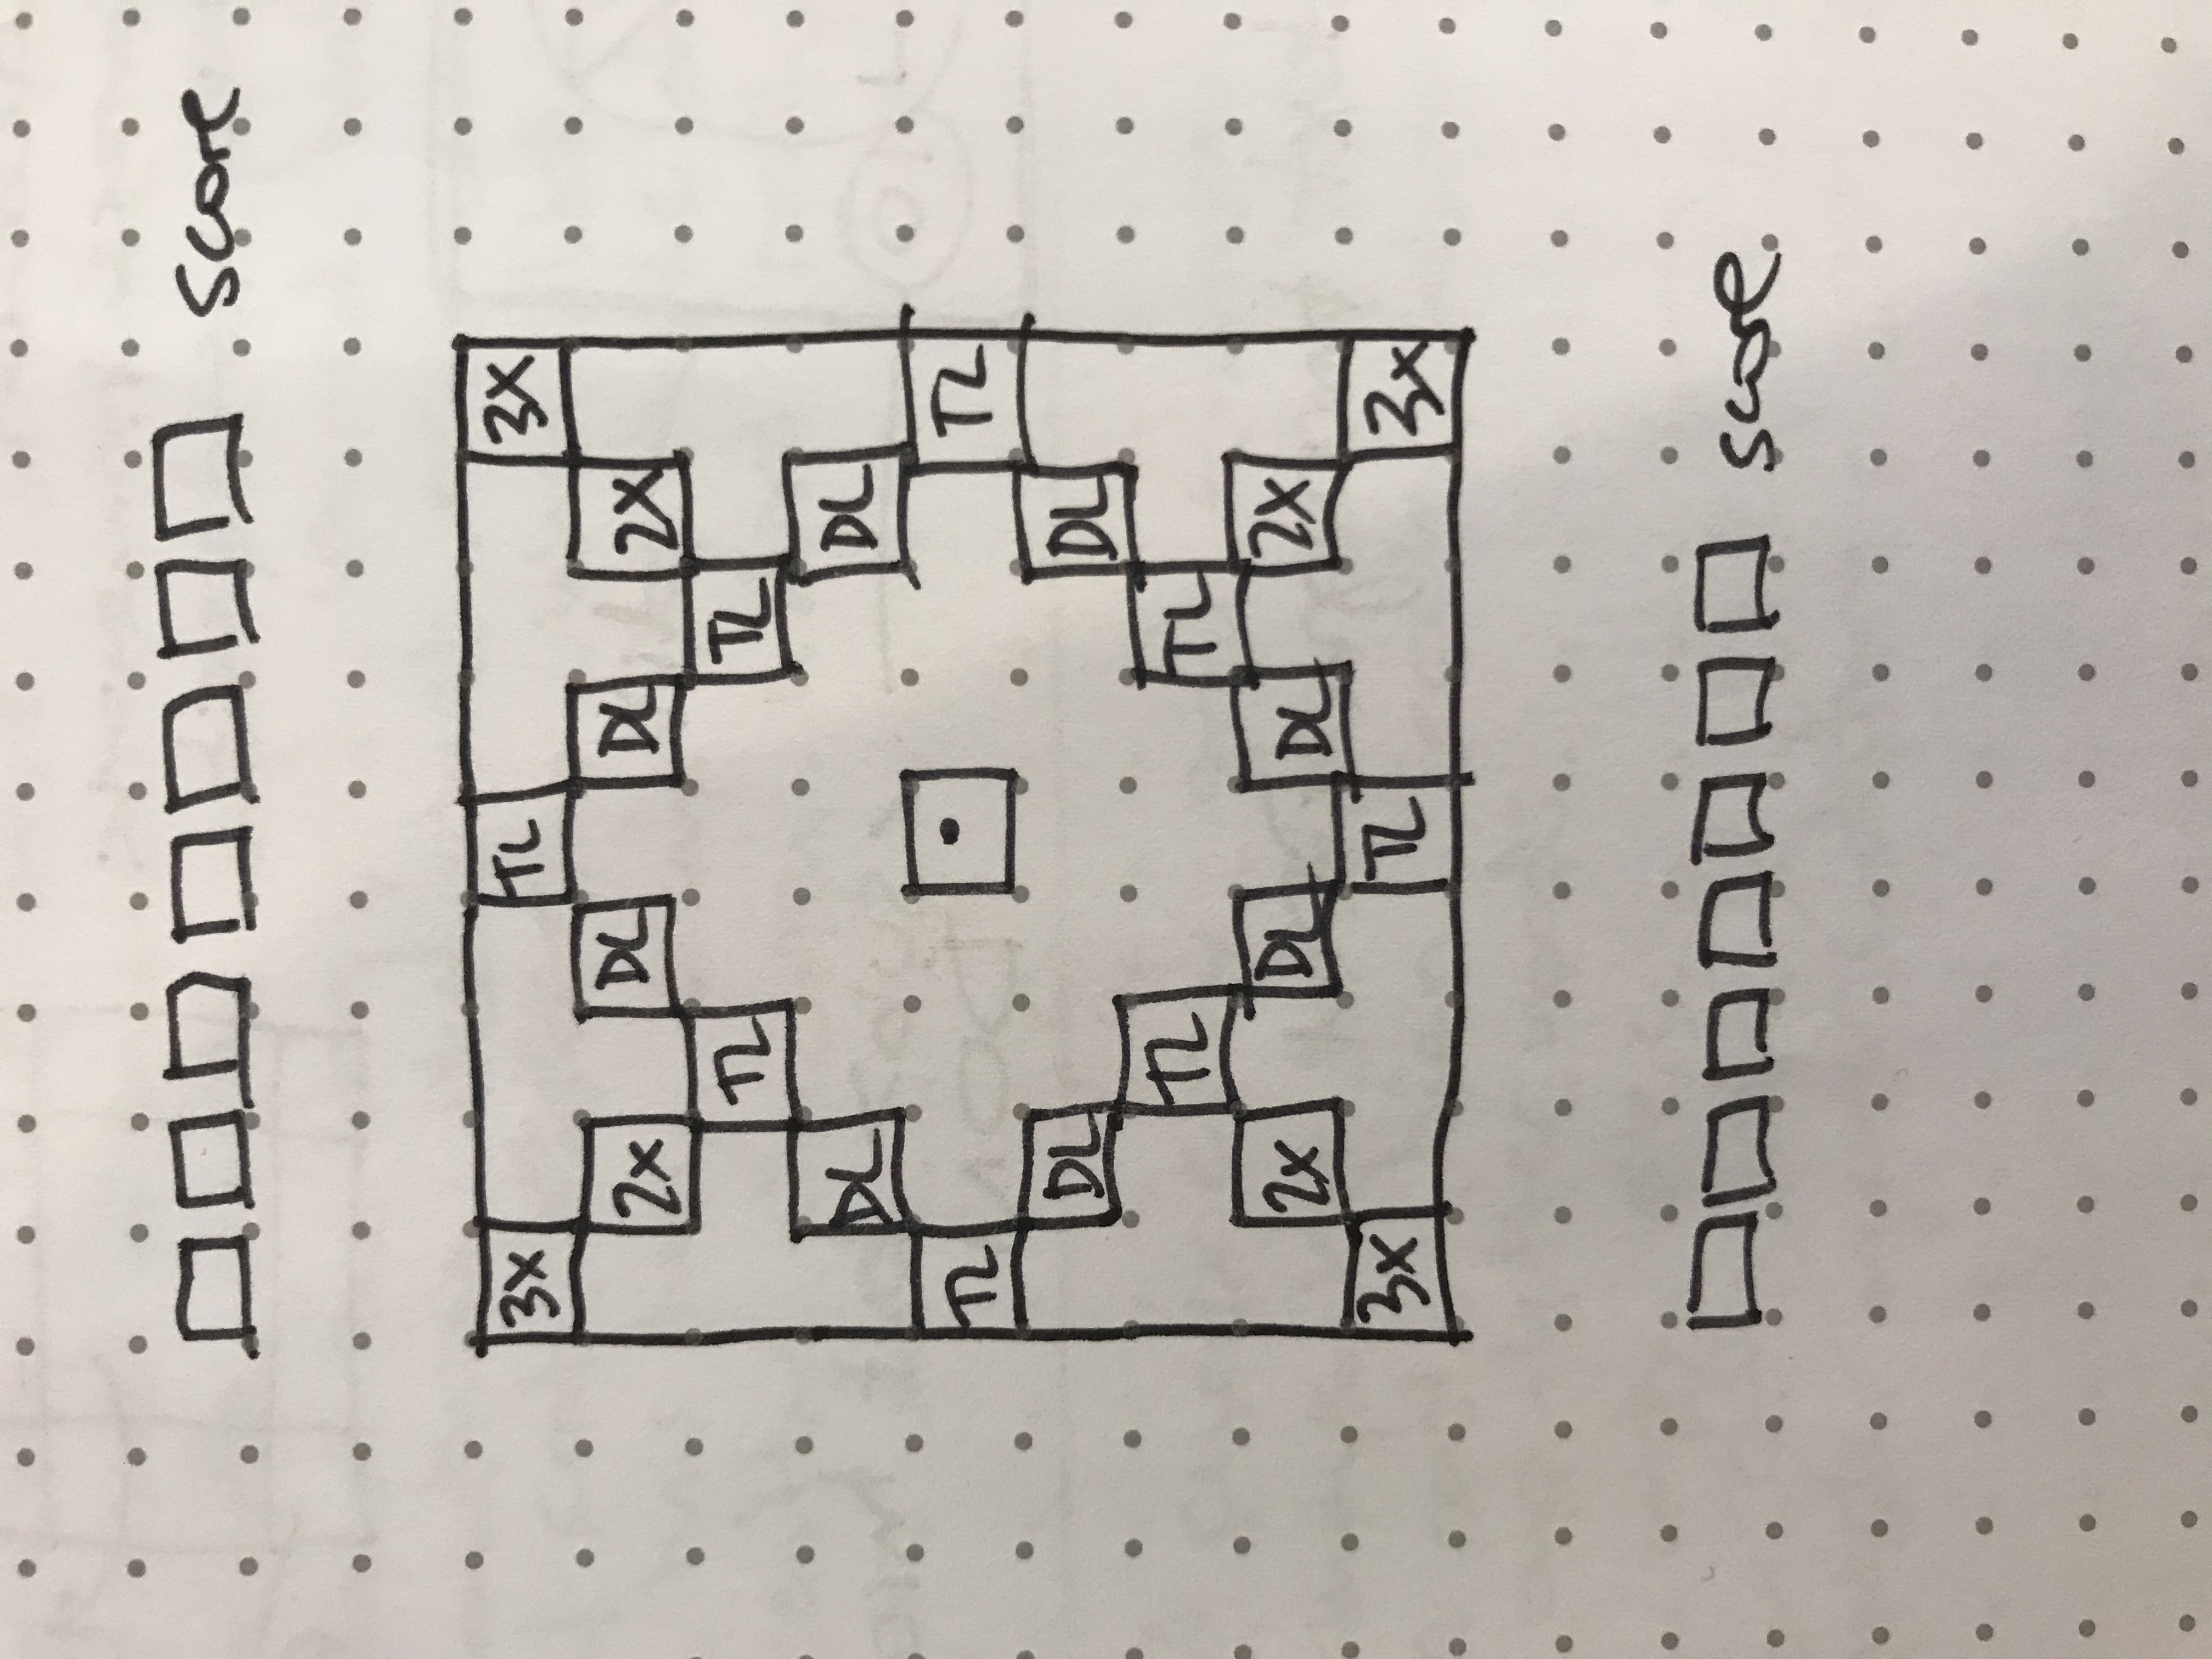 score
3X TL 3X
2X DL DL 2X
TL TL
DL DL
TL TL
DL DL
TL TL
2X DL DL 2X
3X TL 3X
score